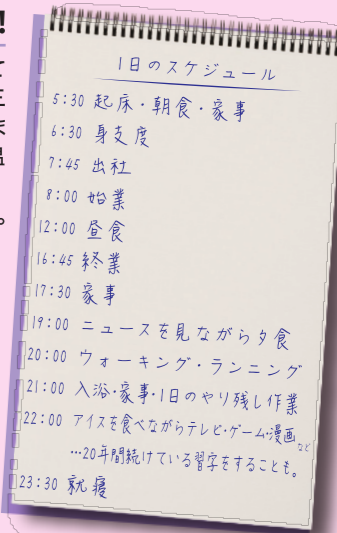 1日のスケジュール
5:30 起床・朝食・家事
6:30 身支度
7:45 出社
8:00 始業
12:00 昼食
16:45 終業
17:30 家事
19:00 ニュースを見ながら夕食
20:00 ウォーキング・ランニング
21:00 入浴・家事・1日のやり残し作業
22:00 アイスを食べながらテレビ・ゲーム・漫画など
…20年間続けている習字をすることも。
23:30 就寝